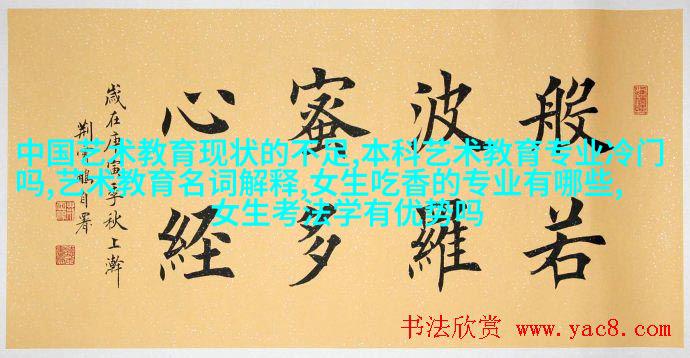 般若
波羅
蜜多
心経
歲在庚寅季秋上澣
荆霄鵬自署
中国艺术教育现状的不足,本科艺术教育专业冷门
吗,艺术教育名词解释,女生吃香的专业有哪些,
女生考法学有优势吗
书法欣赏 www.yac8.com